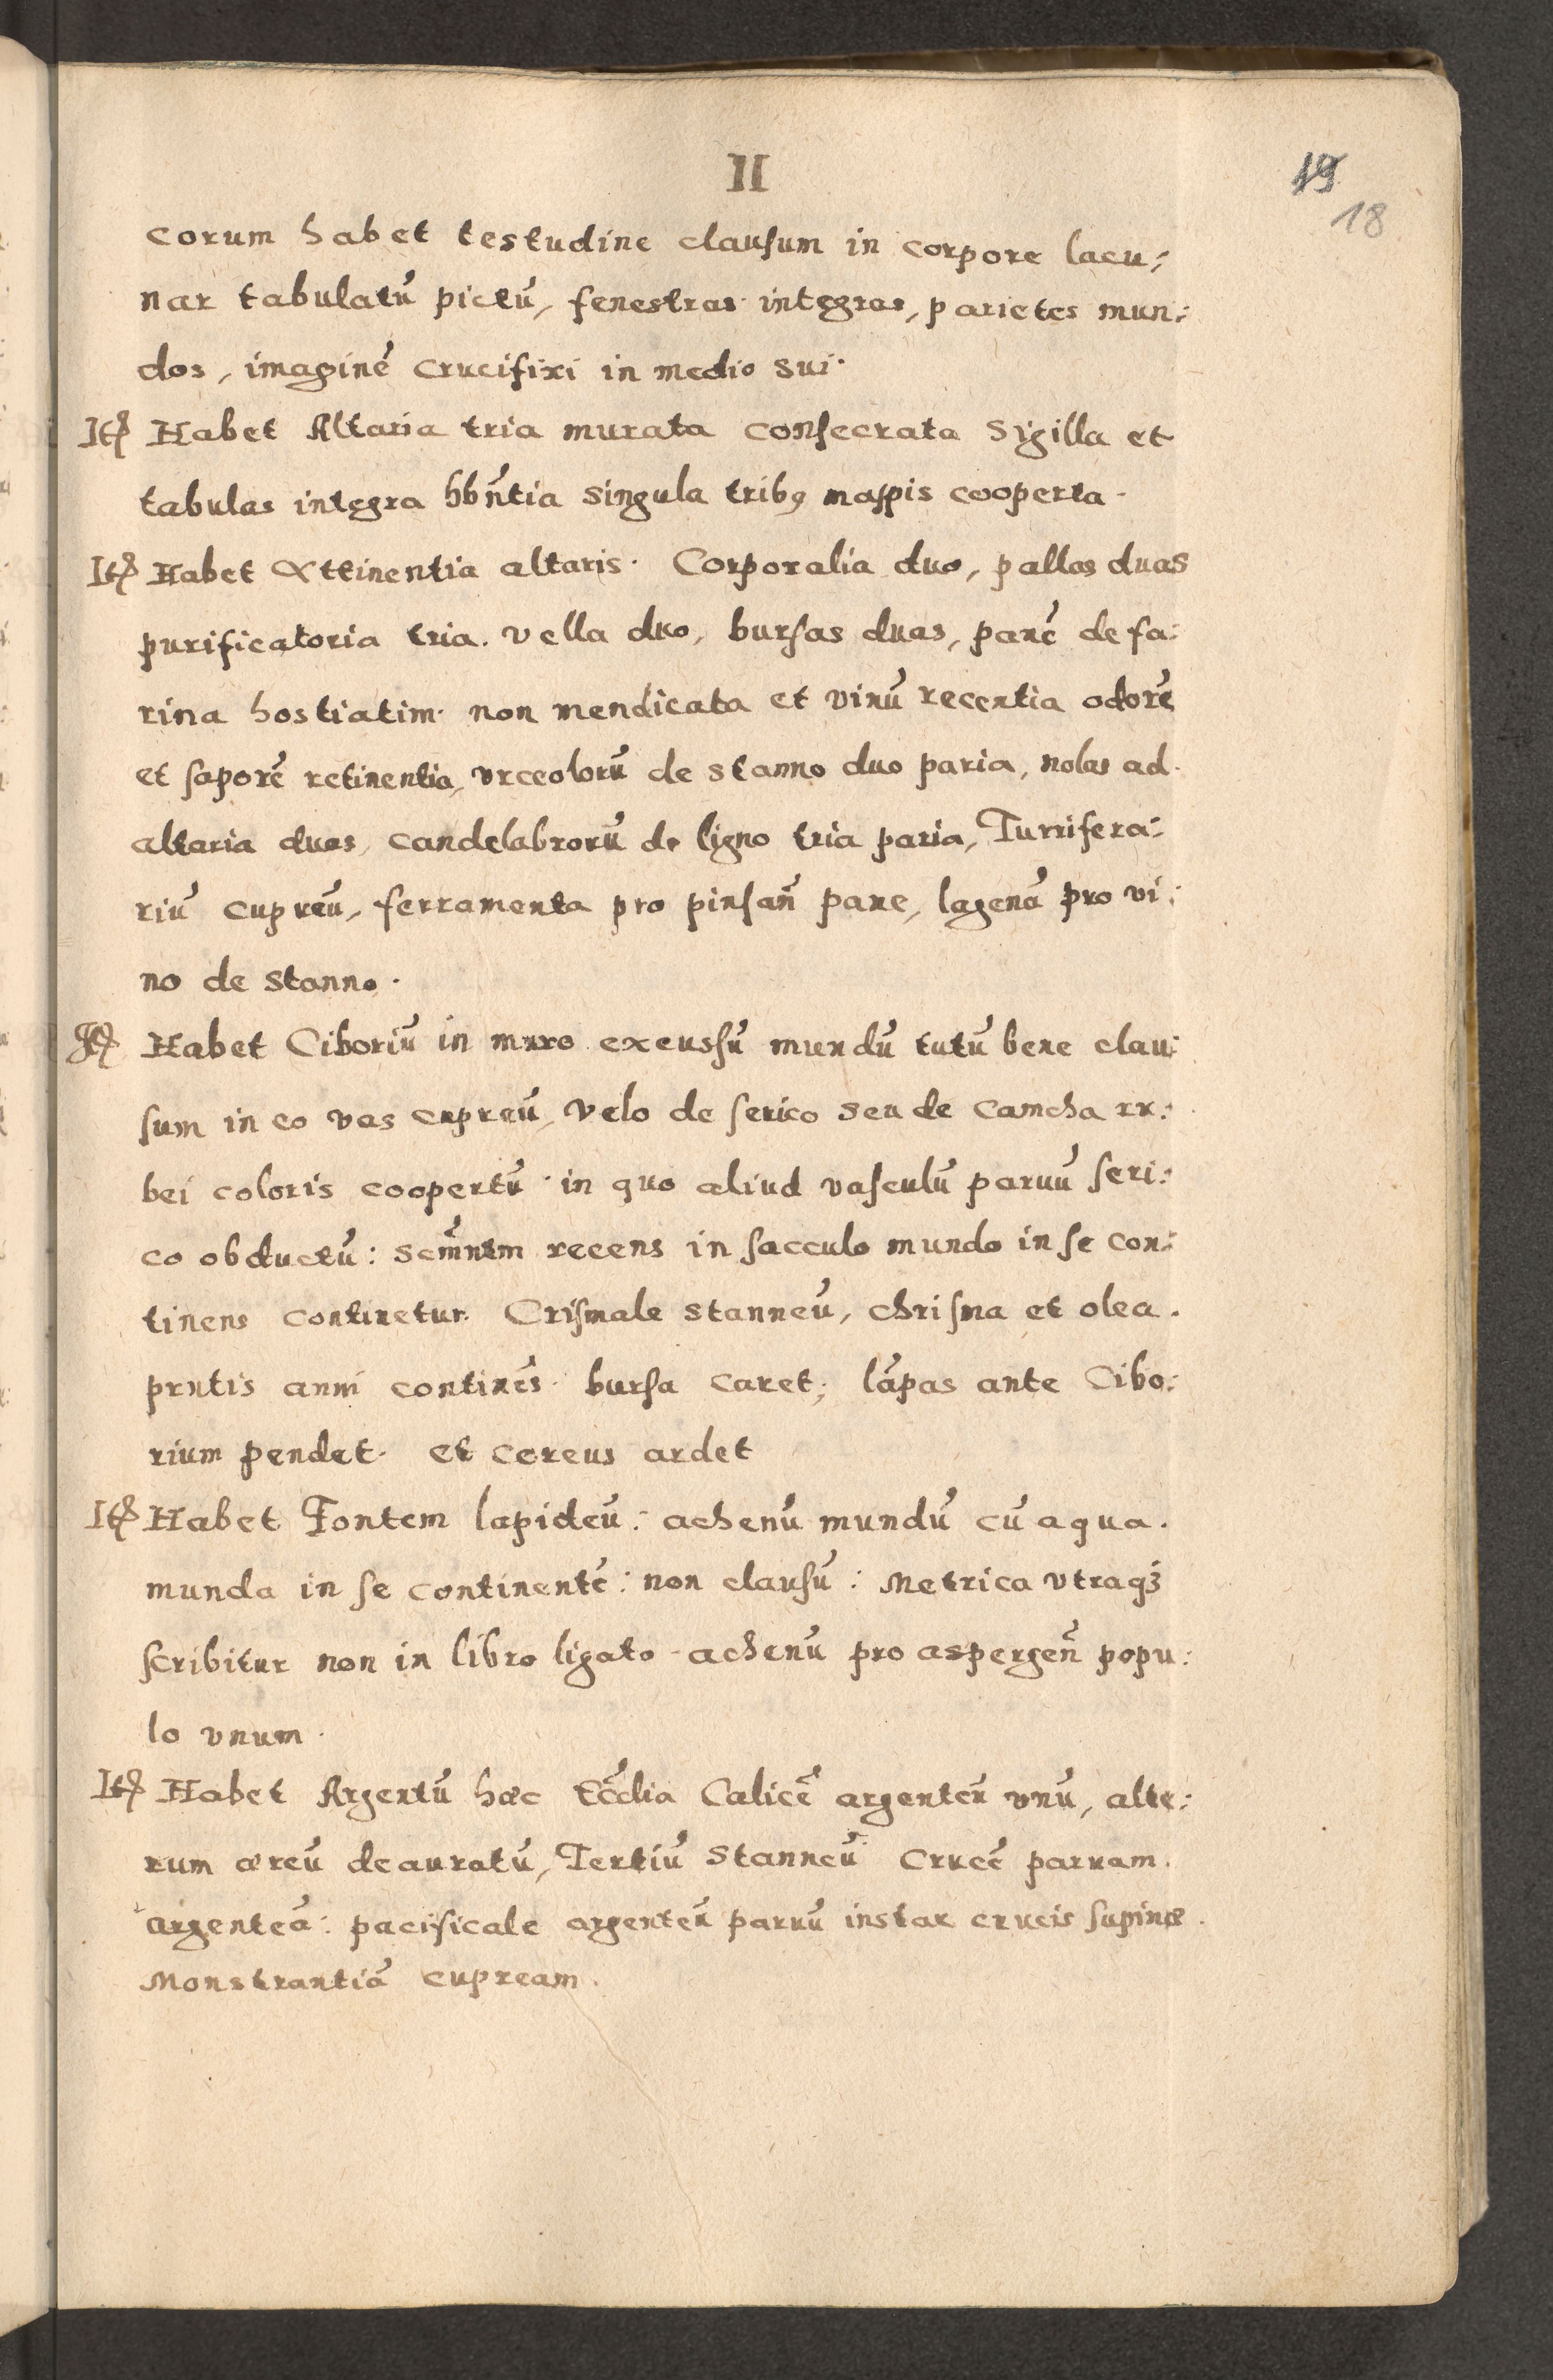 II
19
18
corum habet testudine clausum in corpore lacu:
nar tabulatū pictū, fenestras integras, parietes mun:
dos, imaginē crucifixi in medio sui.
Itē Habet Altaria tria murata consecrata Sigilla et
tabulas integra hbn̄tia singula tribꝫ mappis cooperta.
Itē Habet Attinentia altaris. Corporalia duo, pallas duas
purificatoria tria. vella duo, bursas duas, panē de fa:
rina hostiatim. non mendicata et vinū recentia odorē
et saporē retinentia, vrceolorū de stanno duo paria, nolas ad
altaria duas, candelabrorū de ligno tria paria, Turrifera:
riū cupreū, ferramenta pro pinsan̄ pane, lagenā pro vi:
no de stanno.
Itē Habet Ciboriū in muro excussū mundū tutū bene clau:
sum in eo vas cupreū, velo de serico seu de camcha ru:
bei coloris coopertū. in quo aliud vasculū paruū seri:
co obductū: scm̄ntm recens in sacculo mundo in se con:
tinens continetur. Crismale stanneū, chrisma et olea.
prntis anni continēs. bursa caret; lāpas ante Cibo:
rium pendet. et cereus ardet
Itē Habet Fontem lapideū: achenū mundū cū aqua.
munda in se continentē: non clausū: Metrica vtraqꝫ
scribitur non in libro ligato. achenū pro aspergen̄ popu:
lo vnum.
Itē Habet Argentū hæc Eccl̄ia Calicē argenteū vnū, alte:
rum æreū deauratū, Tertiū Stanneū Crucē paruam.
argenteā: pacificale argenteū paruū instar crucis supinæ.
Monstrantiā cupream.